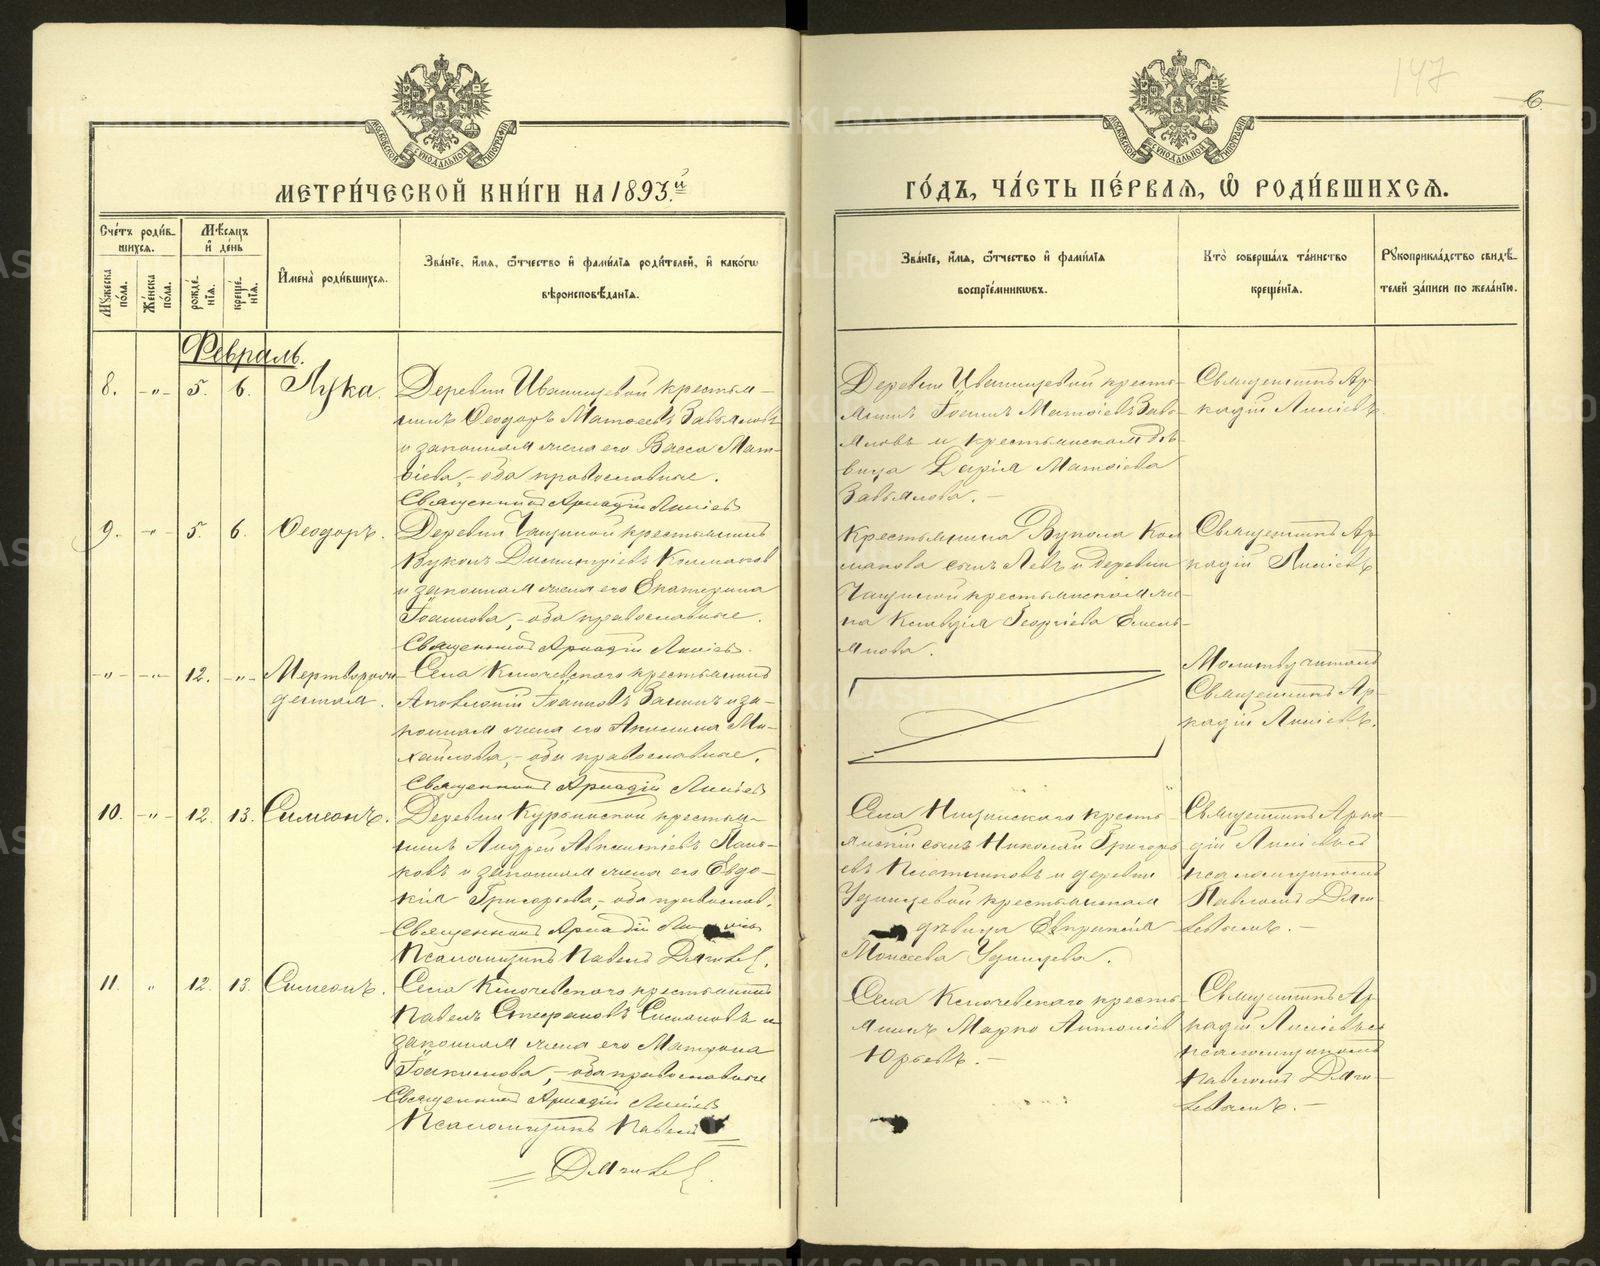 147
6.
МЕТРИ́ЧЕСКОЙ КНИ́ГИ НА 1893.й
ГО́ДЪ, ЧА́СТЬ ПЕ́РВАЯ, Ѽ РОДИ́ВШИХСѦ.
Сче́тъ роди́в-
шихсѧ.
Мꙋ́жеска по́ла.
Же́нска по́ла.
Мѣ́сѧцъ
и҆ де́нь
рожде́нїѧ.
креще́нїѧ.
И҆мена̀ роди́вшихсѧ.
Зва́нїе, и҆́мѧ, ѻ҆́тчество и҆ фами́лїѧ роди́телей, и҆ како́гѡ
вѣроисповѣ́данїѧ.
Зва́нїе, и҆́мѧ, ѻ҆́тчество и҆ фами́лїѧ
воспрїе́мникѡвъ.
Кто̀ соверша́лъ та́инство
креще́нїѧ.
Рꙋкоприкла́дство свидѣ́-
телей за́писи по жела́нїю.
Февраль.
8. -"- 5. 6. Лука.
Деревни Иванищевой крестья-
нинъ Ѳеодоръ Матѳеевъ Завьяловъ
и законная жена его Васса Мат-
ѳіева, - оба православные.
Священникъ Аркадій Лисіевъ
Деревни Иванищевой кресть-
янинъ Іоаннъ Матѳіевъ Завь-
яловъ и крестьянская дѣ-
вица Дарія Матѳіева
Завьялова. -
Священникъ Ар-
кадій Лисіевъ.
9. -"- 5. 6. Ѳеодоръ.
Деревни Чащиной крестьянинъ
Вуколъ Димитріевъ Колмаковъ
и законная жена его Екатерина
Іоаннова, - оба православные.
Священникъ Аркадій Лисіевъ.
Крестьянина Вукола Кол-
макова сынъ Левъ и деревни
Чащиной крестьянская же-
на Клавдія Георгіева Емель-
янова.
Священникъ Ар-
кадій Лисіевъ
-"- -"- 12. -"- Мертворож-
денная.
Села Ключевскаго крестьянинъ
Іоанновъ и за-
конная жена его Анисина Ми-
хайлова, - оба православные.
Священникъ Аркадій Лисіевъ
Молитву читалъ
Священникъ Ар-
кадій Лисіевъ.
10. -"- 12. 13. Симеонъ.
Деревни Курьинской крестья-
нинъ Андрей Авксентіевъ Пань-
ковъ и законная жена его Евдо-
кія Григорьева, - оба православ.
Священникъ Аркадій Лисіевъ
Псаломщикъ Павелъ
Села Ницинскаго кресть-
янскій сынъ Николай Григорь-
евъ Плотниковъ и деревни
Удинцевой крестьянская
дѣвица Евпраксія
Моисеева Удинцева.
Священникъ Арка-
дій Лисіевъ съ
псаломщикомъ
Павломъ
11. " 12. 13. Симеонъ.
Села Ключевскаго крестьянинъ
Павелъ Стефановъ Симановъ и
законная жена его Матрона
Іоакимова, - оба православные
Священникъ Аркадій Лисіевъ
Псаломщикъ Павелъ
Села Ключевскаго кресть-
янинъ Марко Антоніевъ
Юрьевъ. -
Священникъ Ар-
кадій Лисіевъ съ
псаломщикомъ
Павломъ